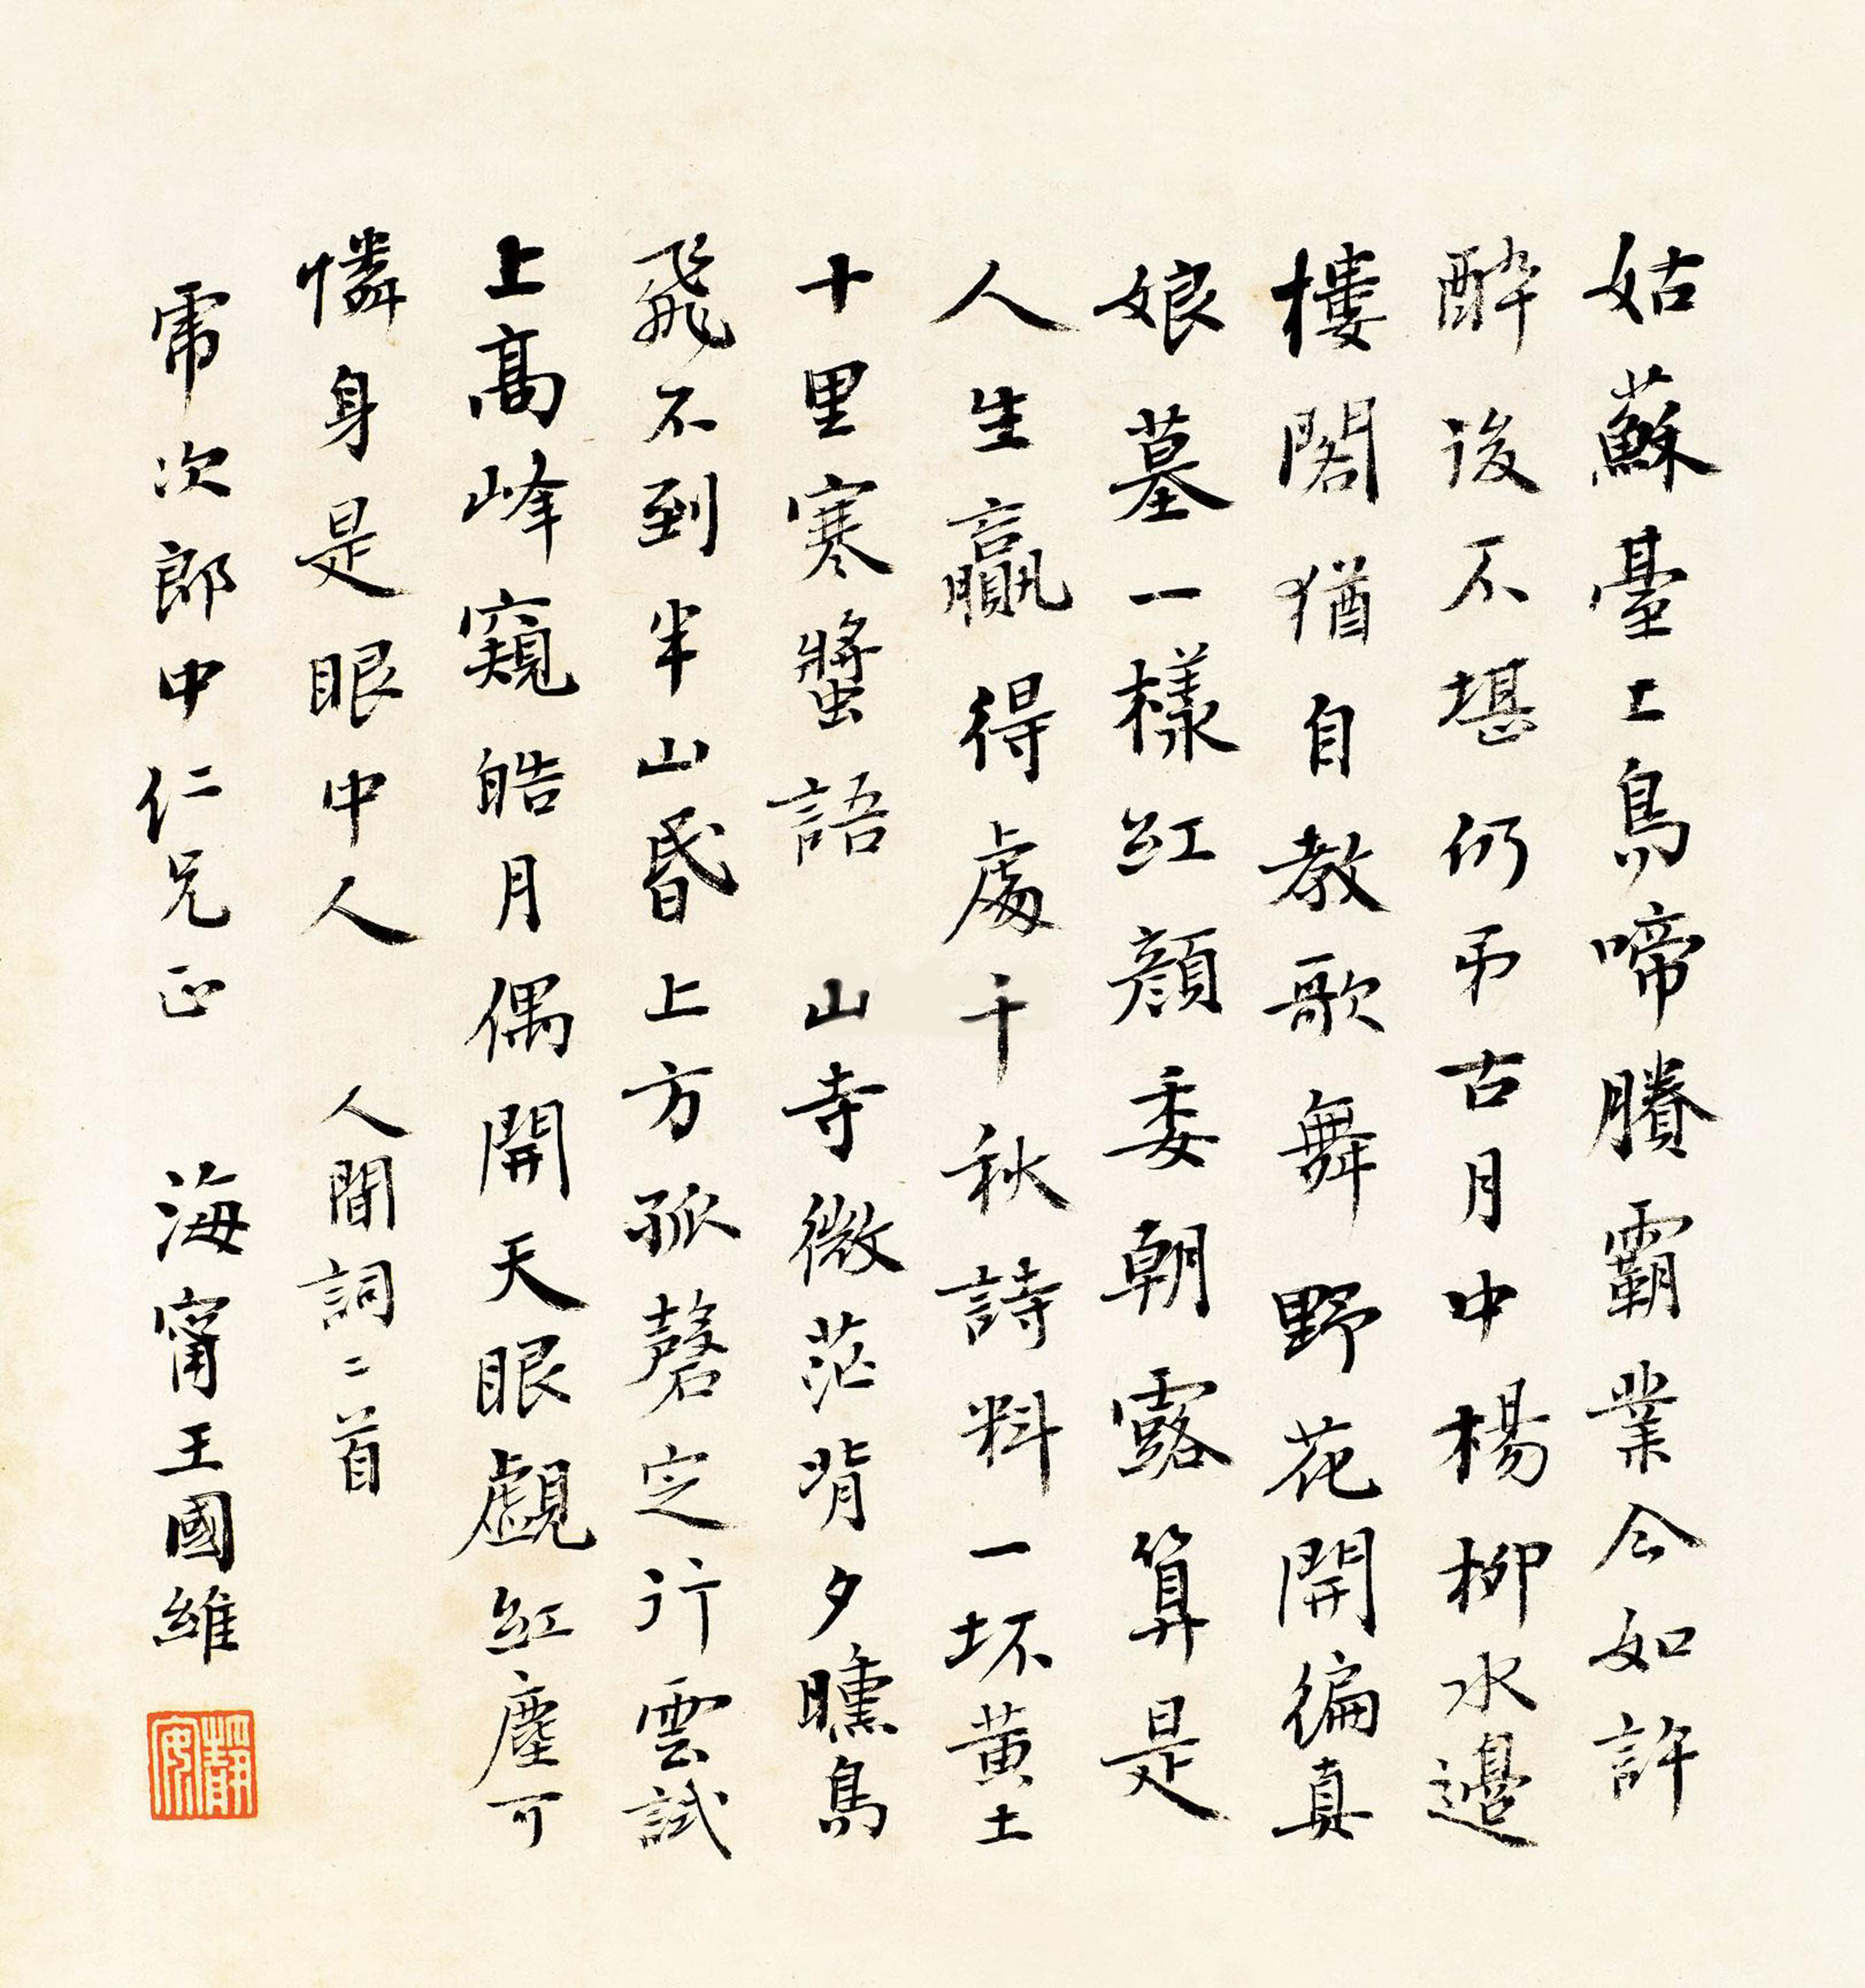 姑蘇臺上烏啼賸霸業今如許
醉後不堪仍弔古月中楊柳水邊
樓閣猶自教歌舞野花開徧真
娘墓一樣紅顏委朝露算是
人生贏得處千秋詩料一坏黃土
十里寒螿語山寺微茫背夕曛鳥
飛不到半山昏上方孤磬定行雲試
上高峰窺皓月偶開天眼覷紅塵可
憐身是眼中人 人間詞二首
帋次郎中仁兄正 海甯王國維
靜安